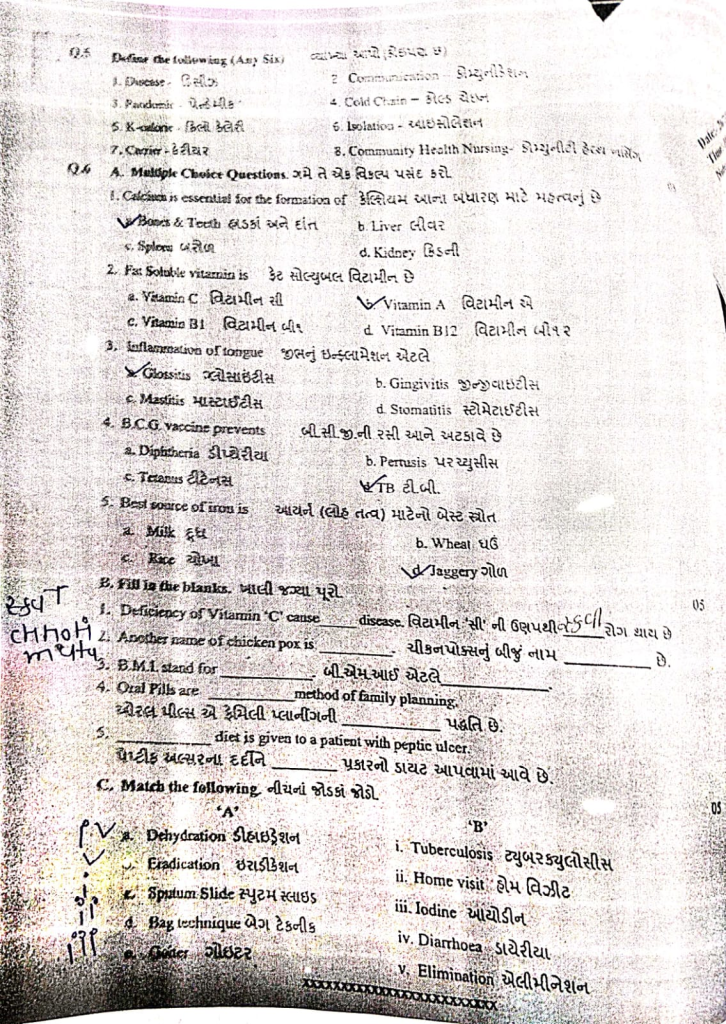 Q.5 Define the following (Any Six) વ્યાખ્યા આપો (કોઇપણ છ)
1. Disease - ડિસીઝ 2. Communication - કોમ્યુનીકેશન
3. Pandemic - પેન્ડેમીક 4. Cold Chain - કોલ્ડ ચેઇન
5. K-calorie - કિલો કેલેરી 6. Isolation - આઇસોલેશન
7. Carrier - કેરીયર 8. Community Health Nursing- કોમ્યુનીટી હેલ્થ નર્સિંગ
Q.6 A. Multiple Choice Questions. ગમે તે એક વિકલ્પ પસંદ કરો.
1. Calcium is essential for the formation of કેલ્શિયમ આના બંધારણ માટે મહત્વનું છે
a. Bones & Teeth હાડકાં અને દાંત b. Liver લીવર
c. Spleen બરોળ d. Kidney કિડની
2. Fat Soluble vitamin is ફેટ સોલ્યુબલ વિટામીન છે
a. Vitamin C વિટામીન સી b. Vitamin A વિટામીન એ
c. Vitamin B1 વિટામીન બી૧ d Vitamin B12 વિટામીન બી૧૨
3. Inflammation of tongue જીભનું ઇન્ફ્લામેશન એટલે
a. Glossitis ગ્લોસાઇટીસ b. Gingivitis જીન્જીવાઇટીસ
c. Mastitis માસ્ટાઈટીસ d. Stomatitis સ્ટોમેટાઈટીસ
4. B.C.G. vaccine prevents બી.સી.જી.ની રસી આને અટકાવે છે
a. Diphtheria ડીપ્થેરીયા b. Pertusis પરચ્યુસીસ
c. Tetanus ટીટેનસ d. TB ટી.બી.
5. Best source of iron is આયર્ન (લોહ તત્વ) માટેનો બેસ્ટ સ્ત્રોત
a. Milk દૂધ b. Wheat ઘઉં
c. Rice ચોખા d. Jaggery ગોળ
B. Fill in the blanks. ખાલી જગ્યા પૂરો. 05
1. Deficiency of Vitamin 'C' cause ______ disease. વિટામીન 'સી' ની ઉણપથી સ્કર્વી રોગ થાય છે
2. Another name of chicken pox is ________. ચીકનપોક્સનું બીજું નામ ________ છે.
3. B.M.I. stand for __________. બી.એમ.આઈ એટલે __________.
4. Oral Pills are __________ method of family planning.
ઓરલ પીલ્સ એ ફેમિલી પ્લાનીંગની __________ પદ્ધતિ છે.
5. __________ diet is given to a patient with peptic ulcer.
પેપ્ટીક અલ્સરના દર્દીને ________ પ્રકારનો ડાયટ આપવામાં આવે છે.
C. Match the following. નીચેનાં જોડકાં જોડો. 05
'A' 'B'
a. Dehydration ડીહાઇડ્રેશન i. Tuberculosis ટ્યુબરક્યુલોસીસ
Eradication ઇરાડીકેશન ii. Home visit હોમ વિઝીટ
c. Sputum Slide સ્પુટમ સ્લાઇડ iii. Iodine આયોડીન
d. Bag technique બેગ ટેકનીક iv. Diarrhoea ડાયેરીયા
e. Goiter ગોઇટર v. Elimination એલીમીનેશન
xxxxxxxxxxxxxxxxxxxxxxxx